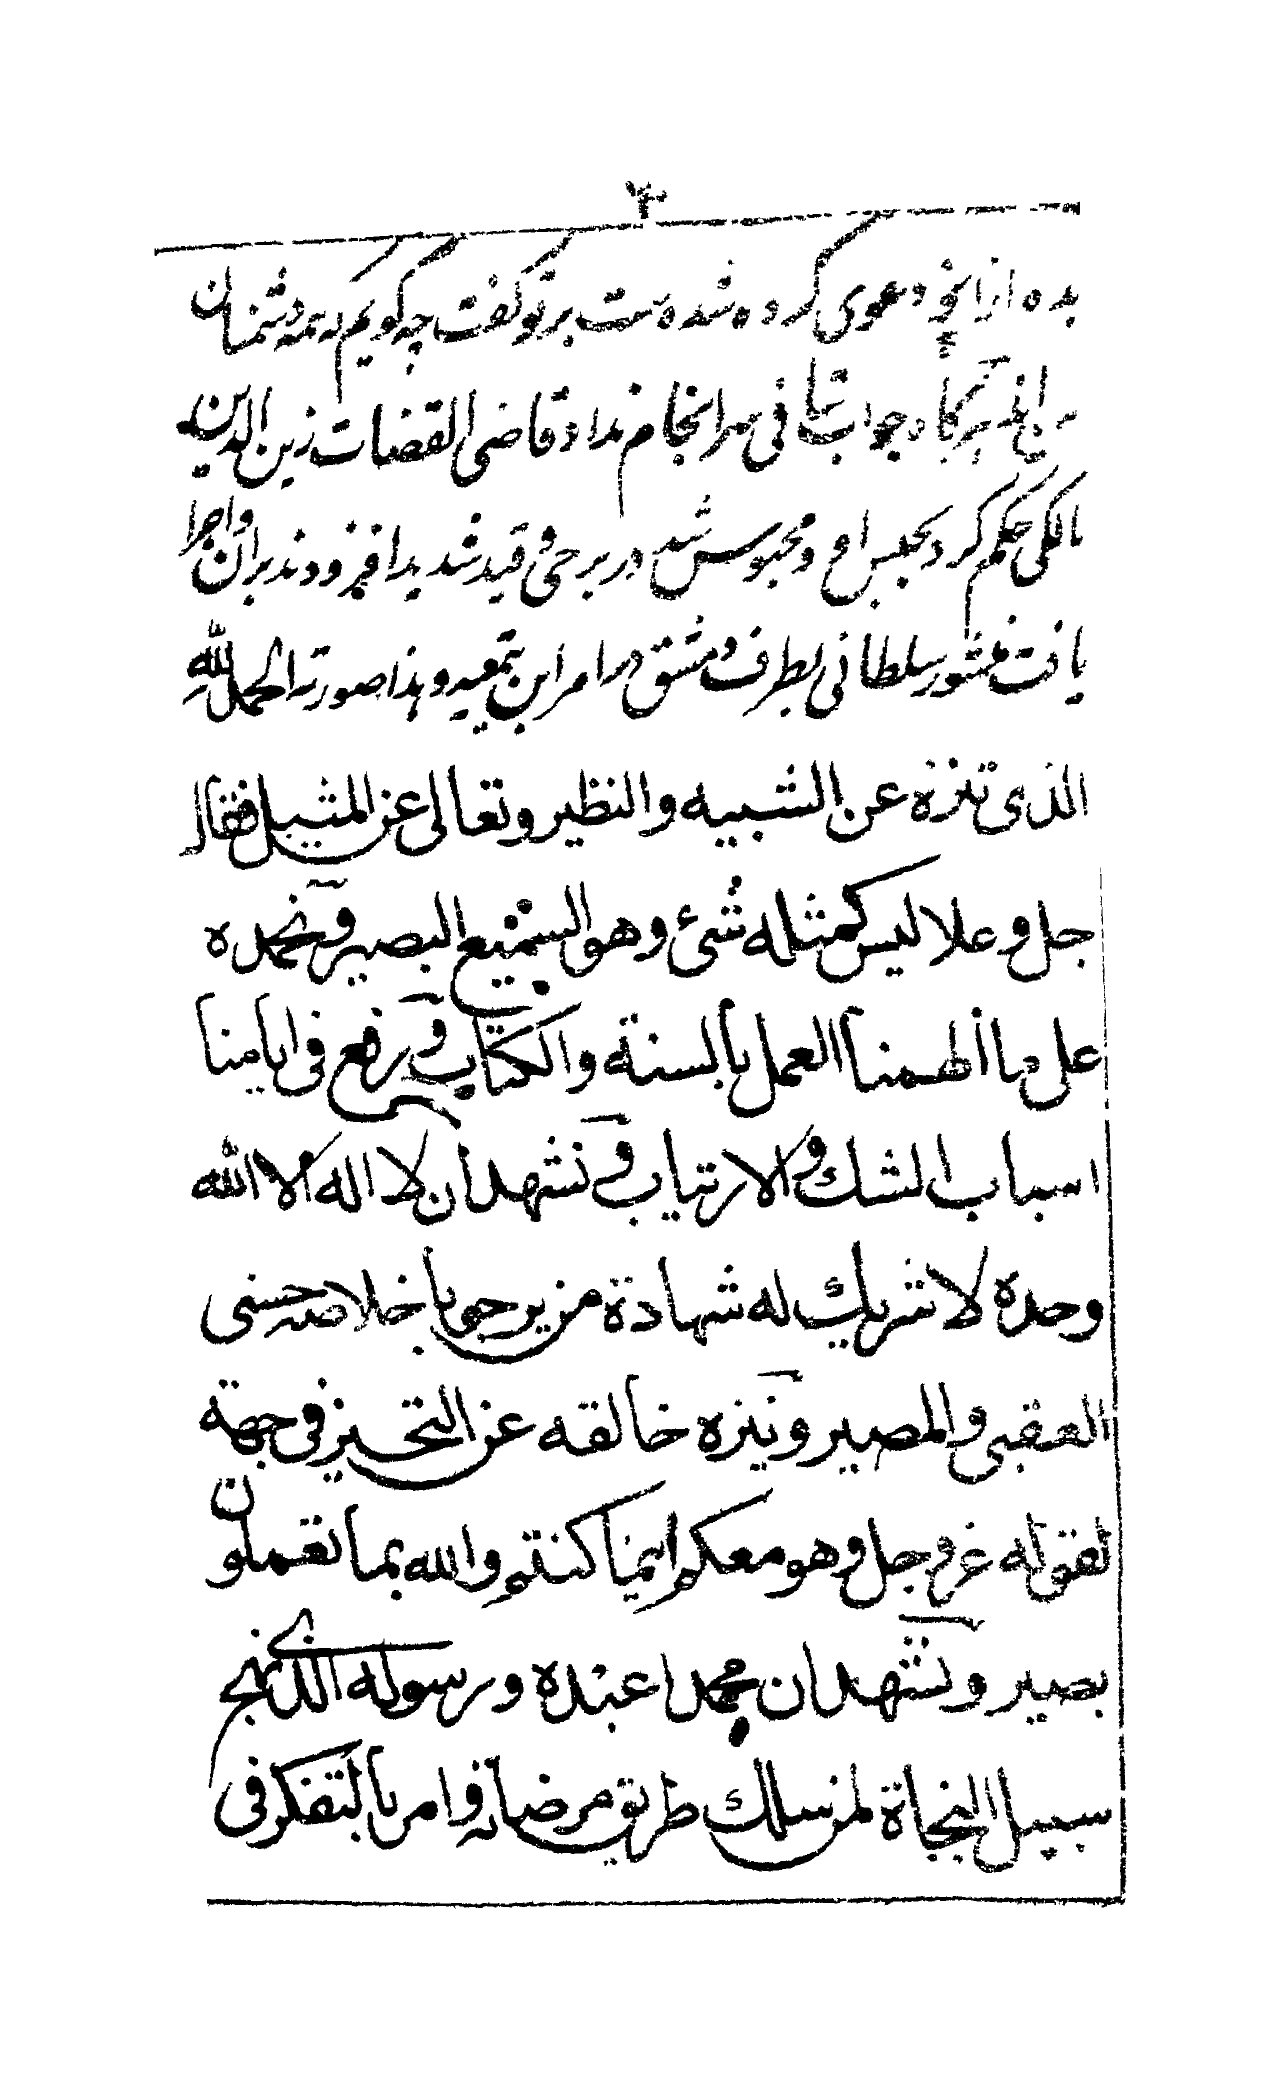 ۴۰
بده از انچه دعوی کرده شده ست بر تو گفت چه گویم که همه دشمنان
اند هرگاه جواب شافی سرانجام نداد قاضی القضات زین الدین
مالکی حکم کرد بحبس او و محبوس شد در برجی و قید شدید افزودند بران و اجرا
یافت منشور سلطانی بطرف دمشق در امر ابن تیمیه و هذا صورته الحمد لله
الذی تنزه عن الشبیه والنظیر و تعالی عن المثیل فقال
جل و علا لیس کمثله شیء و هو السمیع البصیر و نحمده
علی ما ألهمنا العمل بالسنة والکتاب و رفع فی ایامنا
اسباب الشك والارتیاب و نشهد ان لا اله الا الله
وحده لا شریك له شهادة من یرجو باخلاصه حسنی
العقبی والمصیر و ینزه خالقه عن التحیز فی جهة
لقوله عز و جل و هو معکم اینما کنتم والله بما تعملون
بصیر و نشهد ان محمدا عبده و رسوله الذی نهج
سبیل النجاة لمن سلك طریق مرضاته و امر بالتفکر فی